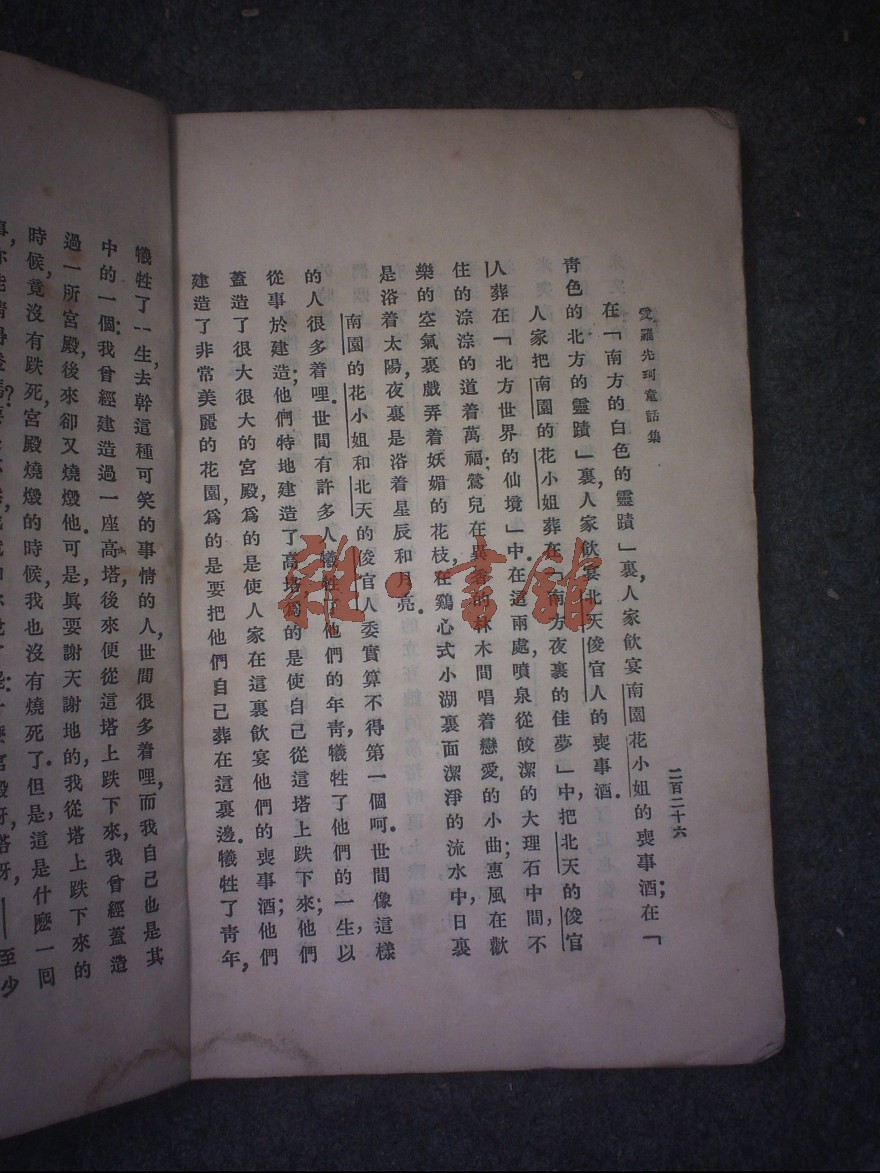 愛羅先珂童話集
二百二十六
在「南方的白色的靈蹟」裏，人家飲宴南園花小姐的喪事酒；在「
青色的北方的靈蹟」裏，人家飲宴北天俊官人的喪事酒．
人家把南園的花小姐葬在「南方夜裏的佳夢」中，把北天的俊官
人葬在「北方世界的仙境」中．在這兩處，噴泉從皎潔的大理石中間，不
住的淙淙的道着萬福；鶯兒在異香的林木間唱着戀愛的小曲；惠風在歡
樂的空氣裏戲弄着妖媚的花枝，在鷄心式小湖裏面潔淨的流水中，日裏
是浴着太陽，夜裏是浴着星辰和月亮．
南園的花小姐和北天的俊官人委實算不得第一個呵．世間像這樣
的人很多着哩．世間有許多人犧牲了他們的年靑，犧牲了他們的一生，以
從事於建造；他們特地建造了高塔，爲的是使自己從這塔上跌下來；他們
蓋造了很大很大的宮殿，爲的是使人家在這裏飲宴他們的喪事酒；他們
建造了非常美麗的花園，爲的是要把他們自己葬在這裏邊．犧牲了靑年，
犧牲了一生，去幹這種可笑的事情的人，世間很多着哩，而我自己也是其
中的一個；我曾經建造過一座高塔，後來便從這塔上跌下來，我曾經蓋造
過一所宮殿，後來卻又燒燬他．可是，眞要謝天謝地的，我從塔上跌下來的
時候，竟沒有跌死，宮殿燒燬的時候，我也沒有燒死了．但是，這是什麽一囘
至少
雜·書館